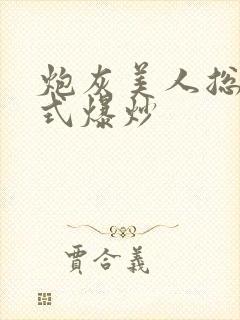 炮灰美人总
式爆炒
賈合義